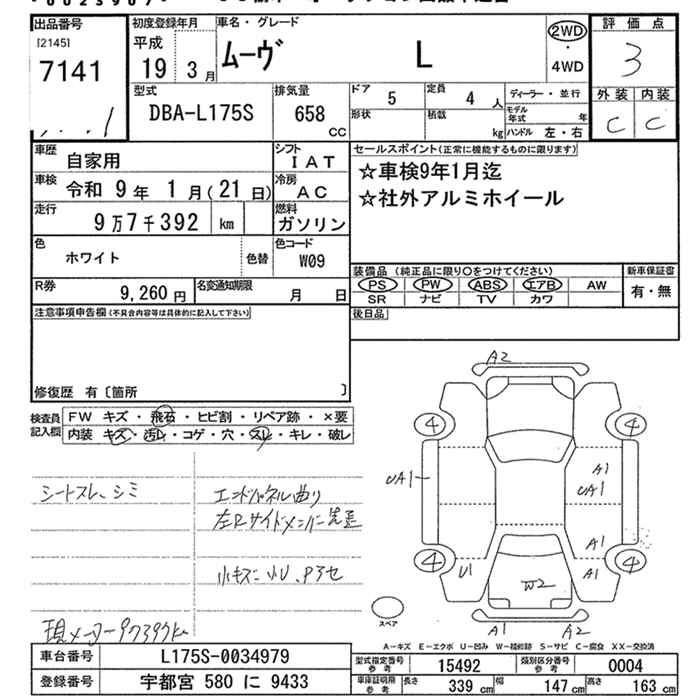 出品番号 初度登録年月 車名・グレード 2WD 評価点
[2145]
7141 平成 19 3月 ムーヴ L ・ 4WD 3
型式 排気量 ドア 5 定員 4 人 ディーラー・並行 外装 内装
DBA-L175S 658 CC 形状 積載 kg モデル年式 年 C C
ハンドル 左・右
車歴 自家用 シフト IAT セールスポイント(正常に機能するものに限ります)
車検 令和 9年 1月(21日) 冷房 AC ☆車検9年1月迄
走行 9万7千392 km 燃料 ガソリン ☆社外アルミホイール
色 ホワイト 色替 色コード W09
装備品 (純正品に限り○をつけてください) 新車保証書
R券 9,260円 名変通知期限 月 日 PS PW ABS エアB AW 有・無
SR ナビ TV カワ
注意事項申告欄(不具合内容等は具体的に記入して下さい) 後日品
修復歴 有〔箇所 〕
検査員記入欄 FW キズ・飛石・ヒビ割・リペア跡・×要
内装 キズ・汚レ・コゲ・穴・スレ・キレ・破レ
A2
4 4
UA1 A1
UA1
A1
4 U1 A1 4
W2
A1 A2
シートスレ、シミ エンドパネル曲り
左Rサイドメンバー
小キズ 小U、
スペア
現メーター97397K
A-キズ E-エクボ U-凹み W-補修跡 S-サビ C-腐食 XX-交換済
車台番号 L175S-0034979 型式指定番号 参考 15492 類別区分番号 参考 0004
登録番号 宇都宮 580 に 9433 車庫証明用 参考 長さ 339 cm 幅 147 cm 高さ 163 cm